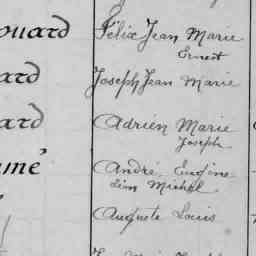 ouard Félix Jean Marie
Ernest
ard Joseph Jean Marie
ard Adrien Marie
Joseph
umé André Eugène
Michel
Auguste Louis